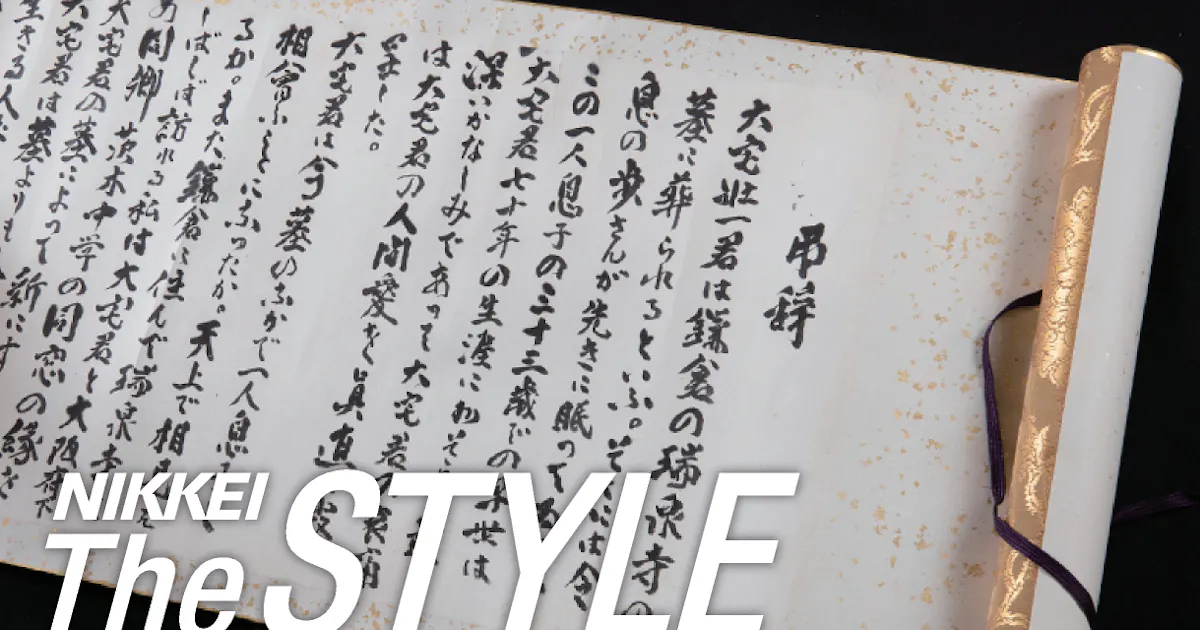 弔辞
大宅壮一君は鎌倉の瑞泉寺の
墓に葬られるといふ。そこには令
息の歩さんが先きに眠って
この一人息子の三十三歳での早世は
大宅君七十年の生涯に
深いかなしみであって 大宅君の哀痛
は大宅君の人間愛を真
ました。
大宅君は今 墓のなかで一人息
相會ふことになったか。天上で相見
るか。また鎌倉に住んで瑞泉寺
しばしば訪れる私は大宅君と大阪府下
の同郷 茨木中学の同窓の縁を
大宅君の墓によって新にす
大宅君は墓よりも
生きる人
NIKKEI
The STYLE